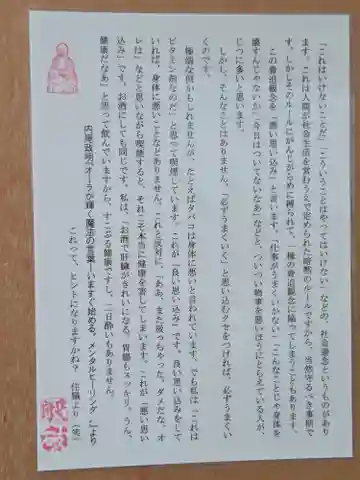 「これはいけないことだ」「こういうことはやってはいけない」などの、社会通念というものがあり
ます。これは人間が社会生活を営むうえで定められた暗黙のルールですから、当然守るべき事柄で
す。しかしそのルールにがんじがらめに縛られて、一種の脅迫観念に陥ってしまうこともあります。
この脅迫観念を「悪い思い込み」と言います。「仕事がうまくいかない」「こんなことじゃ身体を
壊すんじゃないか」「今日はついてないなあ」などと、ついつい物事を悪いほうにとらえている人が、
じつに多いと思います。
しかし、そんなことはありません。「必ずうまくいく」と思い込むクセをつければ、必ずうまくい
くのです。
極端な例かもしれませんが、たとえばタバコは身体に悪いと言われています。でも私は「これは
ビタミン剤なのだ」と思って喫煙しています。これが「良い思い込み」です。良い思い込みをして
いれば、身体に悪いことなどありません。これと反対に、「ああ、また吸っちゃった。ダメだな、オ
レは」などと思いながら喫煙すると、それこそ本当に健康を害してしまいます。これが「悪い思い
込み」です。お酒にしても同じです。私は、「お酒で肝臓がきれいになる、胃腸もスッキリ。うん、
健康だなあ」と思って飲んでいますから、すこぶる健康ですし、二日酔いもありません。
内藤政明『オーラが輝く魔法の言葉―いますぐ始める、メンタルヒーリング』より
これって、ヒントになりますかね？　住職より（笑）